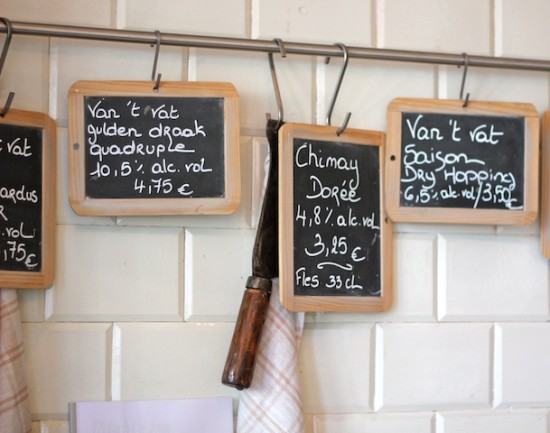 'T vat
ardus
R
.vol
,75€
Van 't vat
gulden draak
quadruple
10,5% alc.vol
4,75 €
Chimay
Dorée
4,8% alc.vol
3,25 €
Fles 33cl
Van 't vat
Saison
Dry Hopping
6,5% alc.vol/3,50€